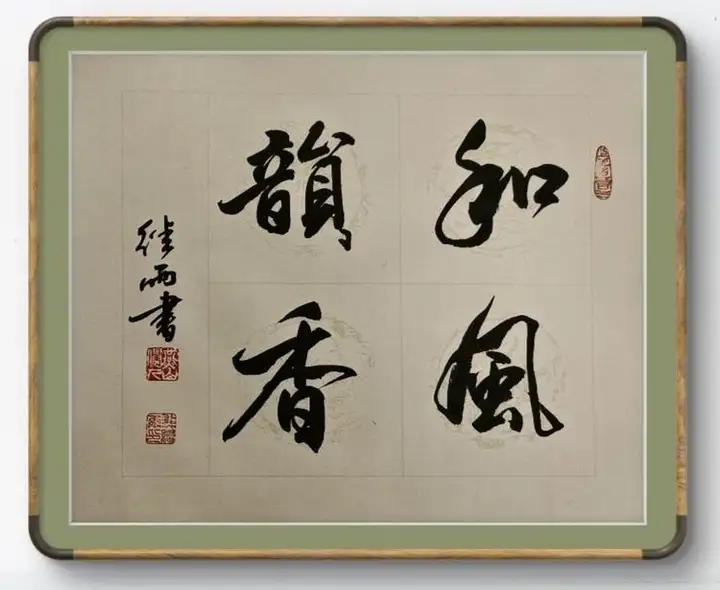 和風
韻香
继雨書